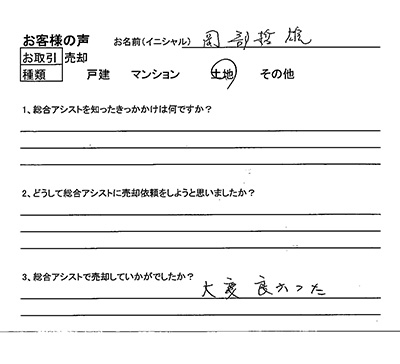 お客様の声 お名前(イニシャル) 岡部哲雄
お取引 売却
種類 戸建 マンション 土地 その他
1、総合アシストを知ったきっかけは何ですか?
2、どうして総合アシストに売却依頼をしようと思いましたか?
3、総合アシストで売却していかがでしたか?
大変良かった